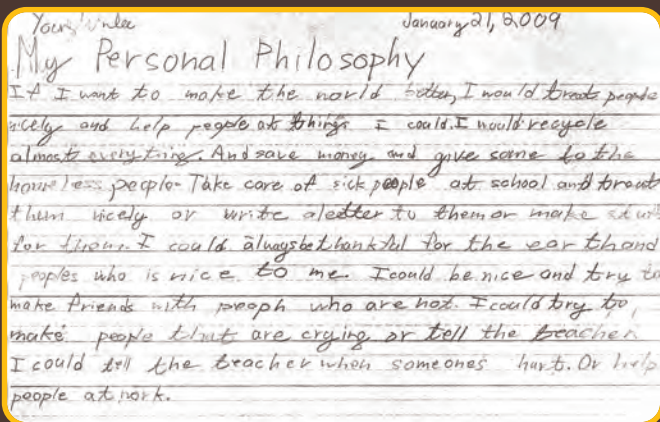 January 21, 2009
My Personal Philosophy
If I want to make the world better, I would treat people
nicely and help people at things I could. I would recycle
almost everything. And save money and give some to the
homeless people. Take care of sick people at school and treat
them nicely or write a letter to them or make stuff
for them. I could always be thankful for the earth and
peoples who is nice to me. I could be nice and try to
make friends with people who are not. I could try to
make people that are crying or tell the teacher
I could tell the teacher when someones hurt. Or help
people at work.